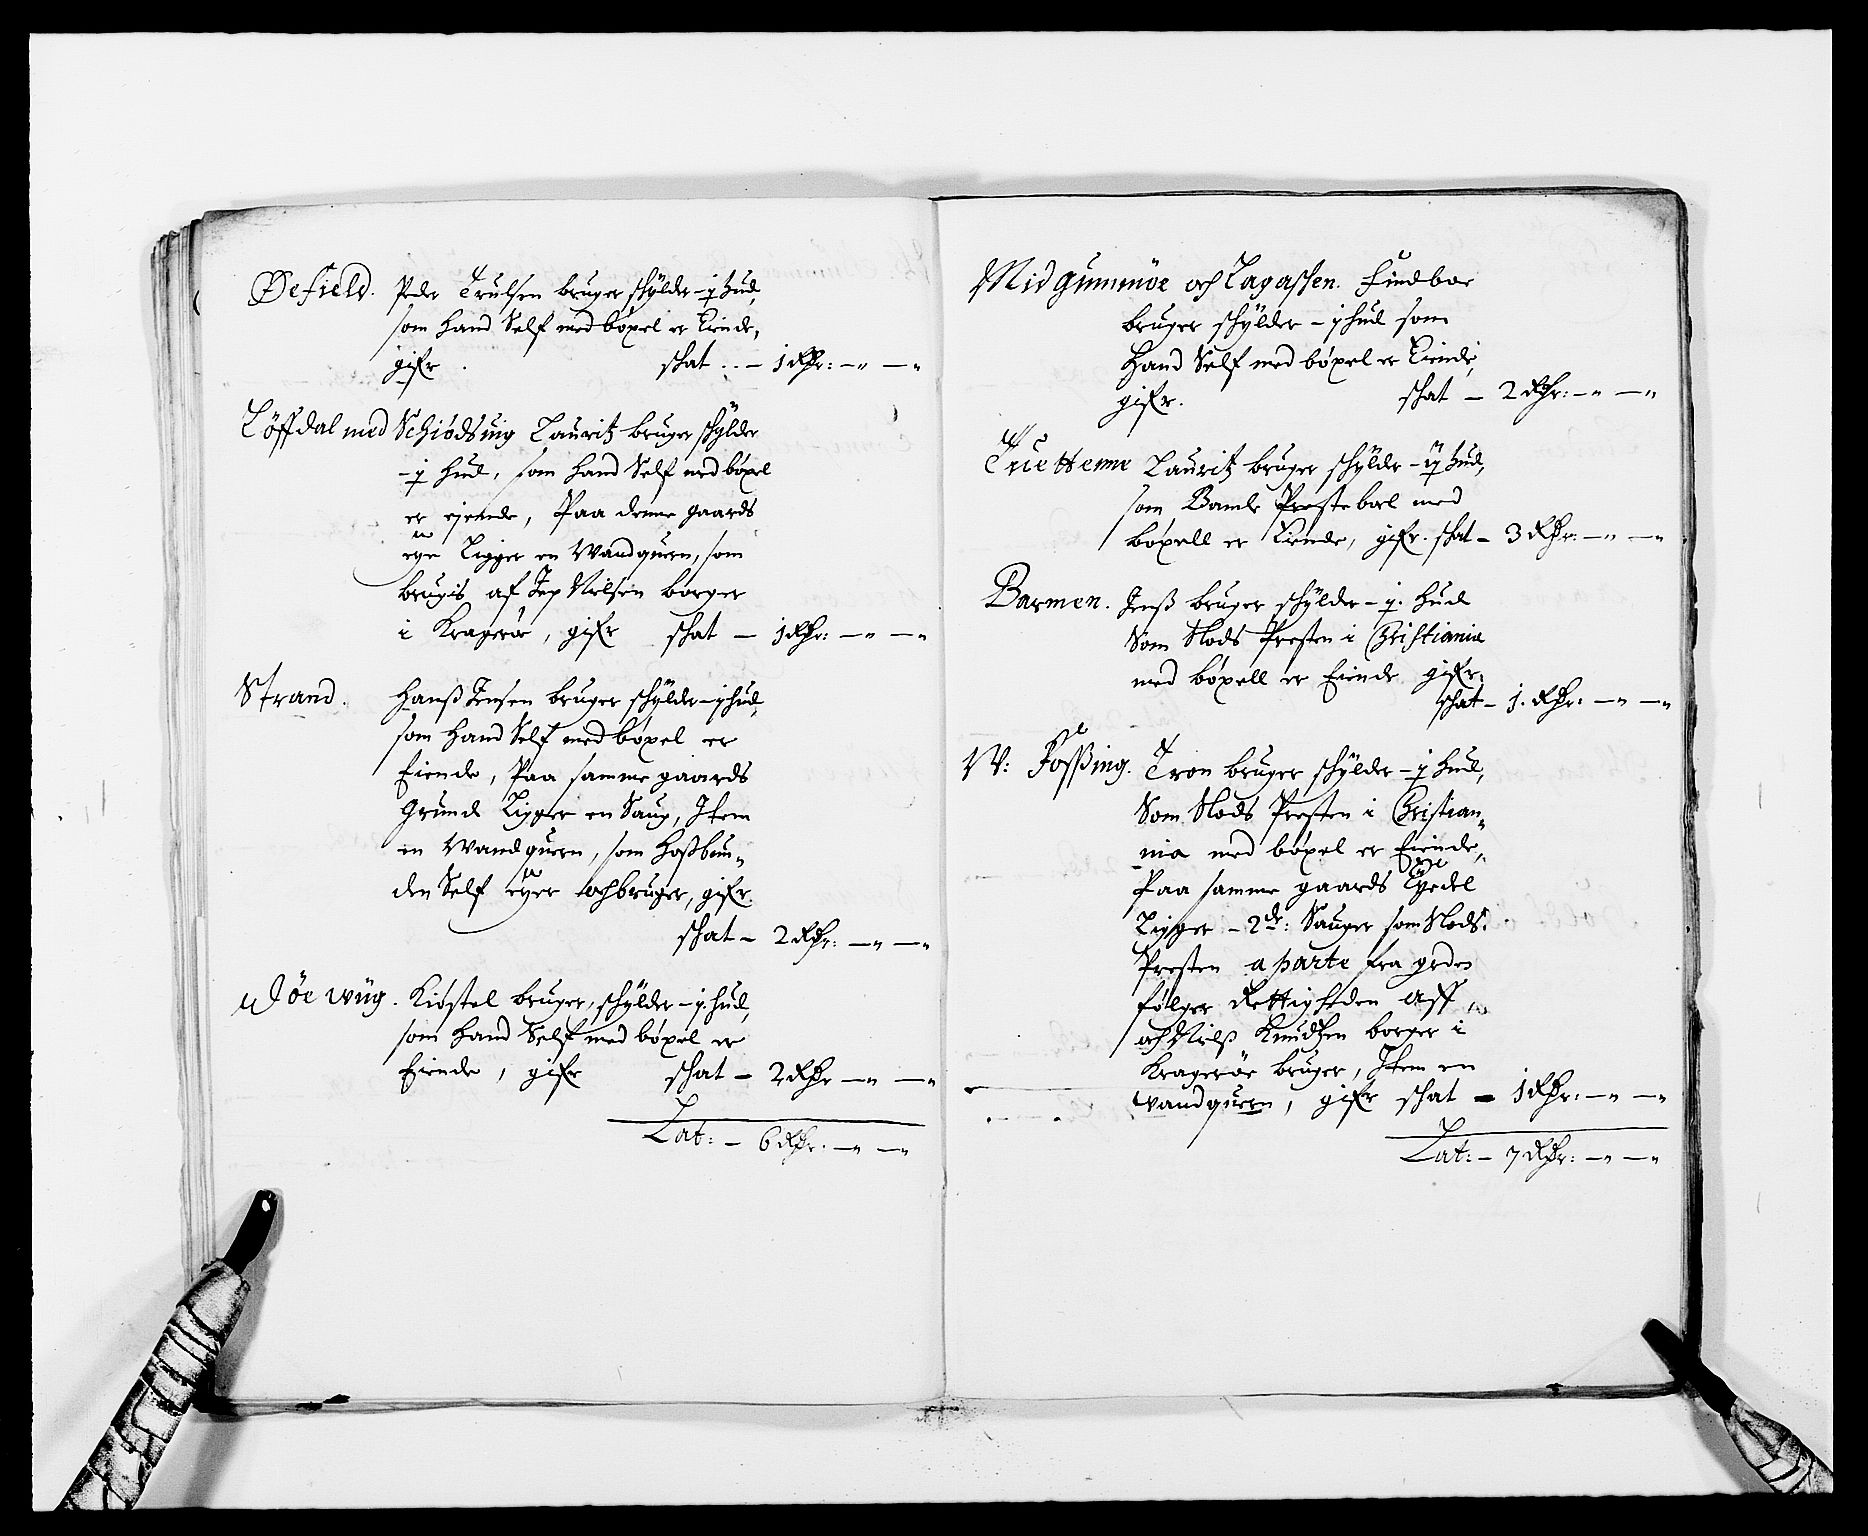 Øefield. Peder Trulsen bruger schylder - j hud,
som hand Self med böxel er Eiende,
gifr schat - 1 Rdr: - " - "
Löffdal med Schiödsuig Lauritz bruger schylder
- j hud, som hand Self med böxel
er ejende, Paa denne gaards
eye Ligger en Wandquern, som
brugis af Jep Nielsen borger
i Kragerøe, gifr schat - 1 Rdr: - " - "
Strand. Hanß Jensen bruger schylder - j hud,
som hand Self med böxel er
Eiende, Paa samme gaards
Grund Ligger en Saug, Item
en Wandquern, som hoßbun„
den Self eyer och bruger, gifr
schat - 2 Rdr: - " - "
Döe wiig. Kiöstel bruger, schylder - j. hud,
som hand Self med böxel er
Eiende, gifr schat - 2 Rdr - " - "
Lat: - 6 Rdr: - " - "
Mid gummöe och Tagassen. Findboe
bruger schylder - j hud som
Hand Self med böxel er Eiende,
gifr. schat - 2 Rdr: - " - "
Tuettenne Lauritz bruger schylder - ij hud,
som Bamle Presteboel med
böxell er Eiende, gifr. schat - 3 Rdr: - " - "
Barmen. Jenß bruger schylder - j. hud
Som Slods Presten i Christiania
med böxell er Eiende gifr:
schat - 1. Rdr: - " - "
W: Foßing. Tron bruger schylder - j hud,
Som Slods Presten i Christian„
nia med böxel er Eiende,
Paa samme gaards
Ligger - 2de: Sauger som Slods
Presten aparte fra
fölger Rettigheden aff,
och Nielß Knudsen borger i
Kragerøe bruger, Item en
vandquern, gifr schat - 1 Rdr: - " - "
Lat: - 7 Rdr: - " - "